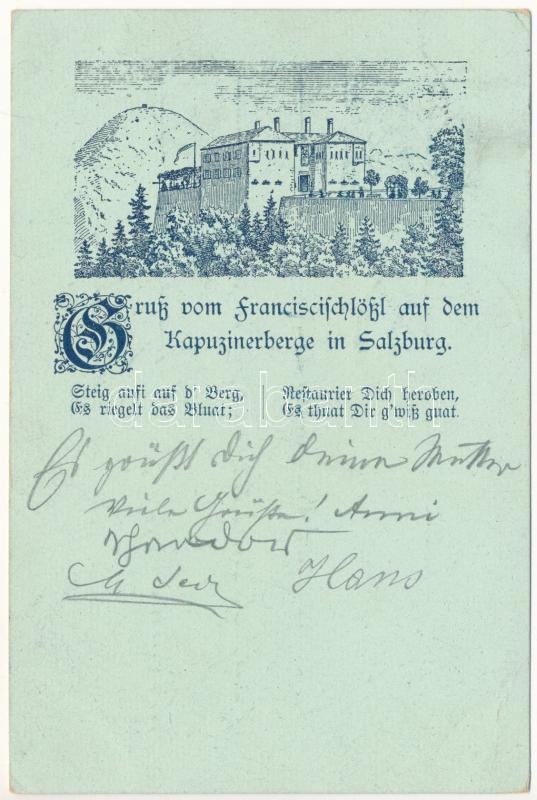 Gruß vom Franciscischlößl auf dem
Kapuzinerberge in Salzburg.
Steig aufi auf d' Berg,
Es riegelt das Bluat;
Restaurier Dich heroben,
Es thuat Dir g'wiß guat.
darabanth
Es grüßt Dich Deine Mutter
Viele Grüße! Anni
Hans